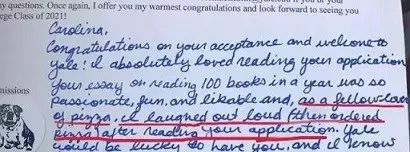 ny questions. Once again, I offer you my warmest congratulations and look forward to seeing you
ege Class of 2021!
Carolina,
Congratulations on your acceptance and welcome to
Yale! I absolutely loved reading your application
Your essay on reading 100 books in a year was so
passionate, fun, and likable and, as a fellow lover
missions
of pizza, I laughed out loud (then ordered
pizza) after reading your application. Yale
would be lucky to have you, and I know